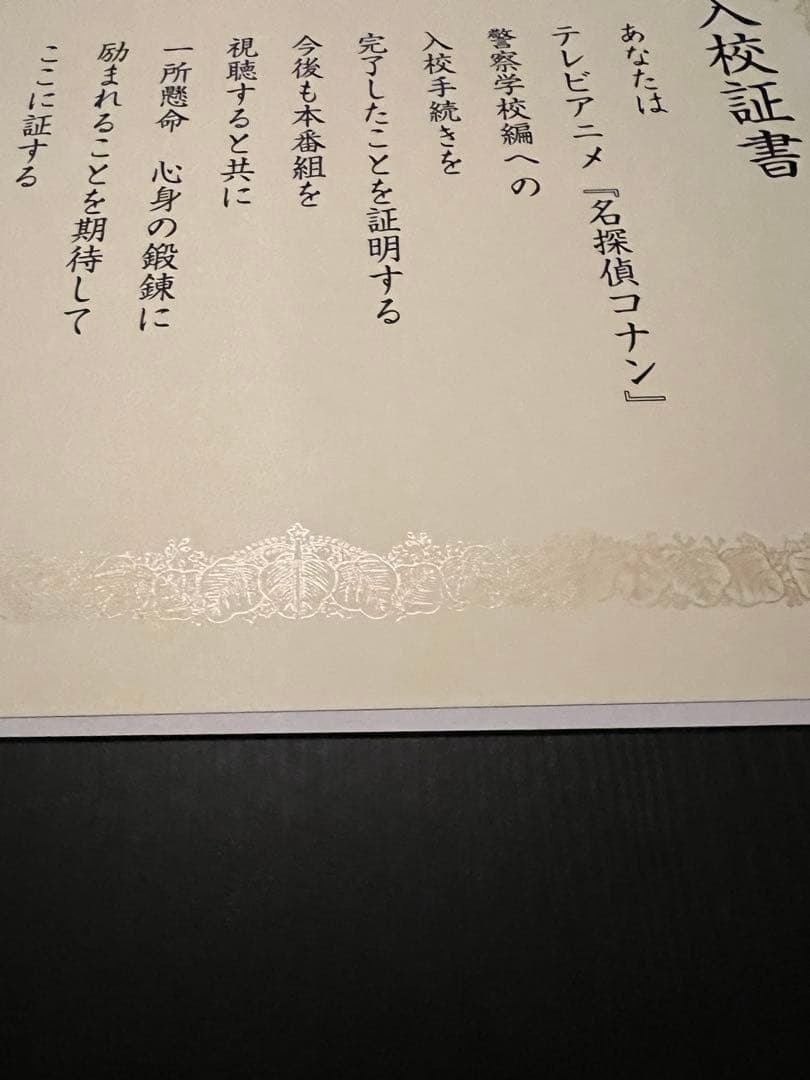 入校証書
あなたは
テレビアニメ『名探偵コナン』
警察学校編への
入校手続きを
完了したことを証明する
今後も本番組を
視聴すると共に
一所懸命 心身の鍛錬に
励まれることを期待して
ここに証する